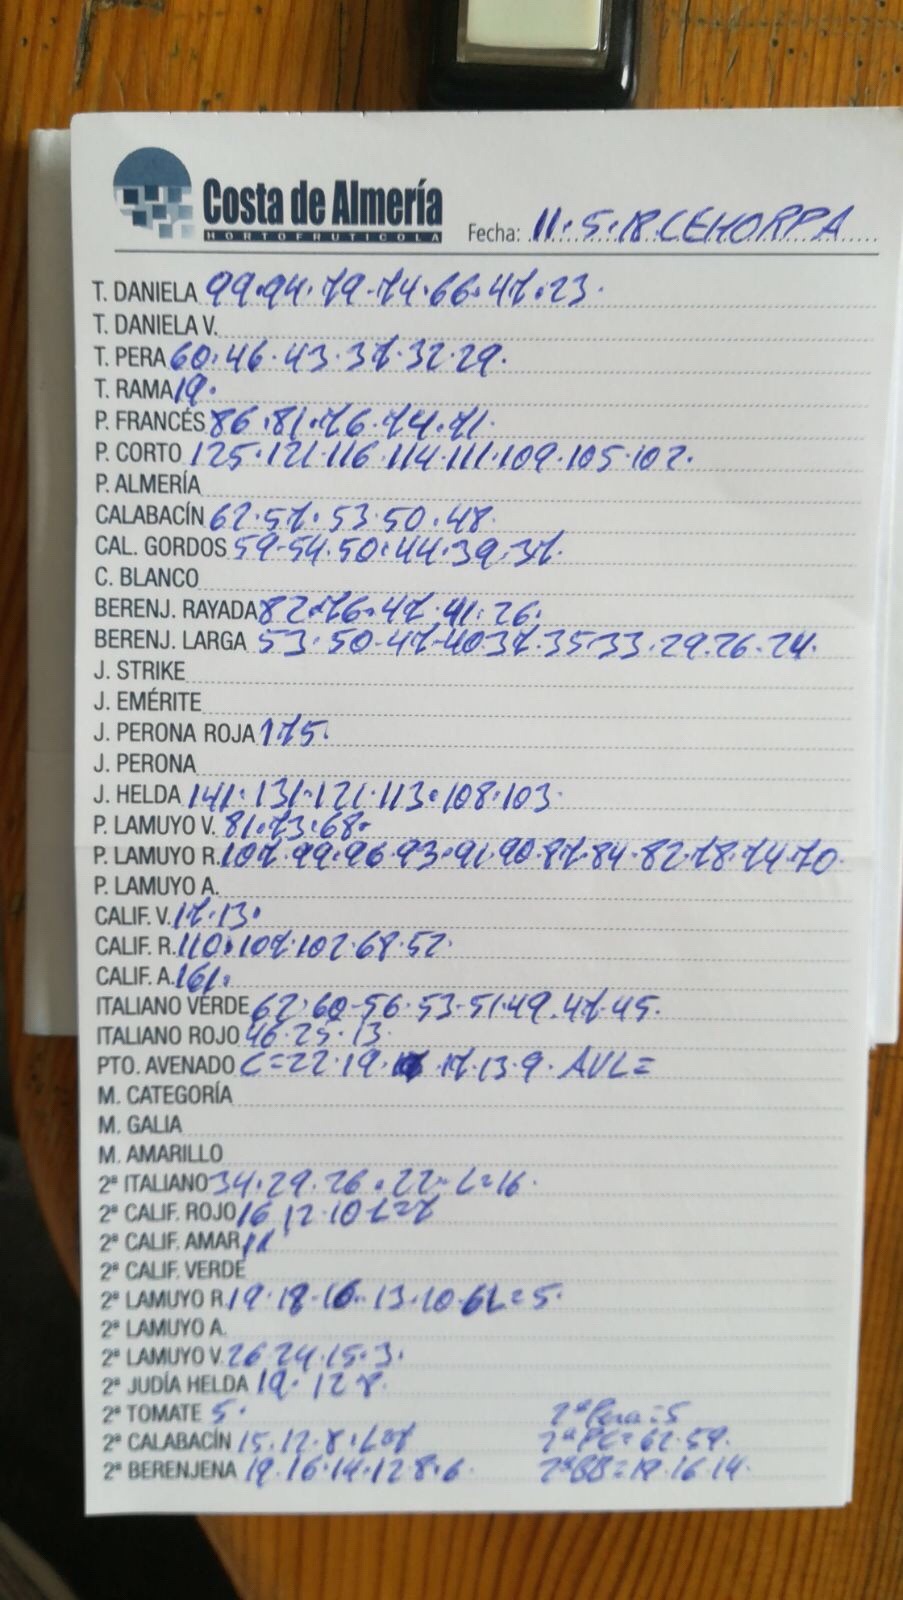 Costa de Almería
HORTOFRUTICOLA
Fecha: 11·5·18 CEHORPA
T. DANIELA 99·94·79-74·66·47·23·
T. DANIELA V.
T. PERA 60·46·43·37·32·29·
T. RAMA 19·
P. FRANCÉS 86·81·76·74·71·
P. CORTO 125·121·116·114·111·109·105·102·
P. ALMERÍA
CALABACÍN 62·57·53·50·48·
CAL. GORDOS 59-54·50·44·39·37·
C. BLANCO
BERENJ. RAYADA 82·76·47·41·26·
BERENJ. LARGA 53·50·47-40·37·35·33·29·26·24·
J. STRIKE
J. EMÉRITE
J. PERONA ROJA 175·
J. PERONA
J. HELDA 141·131·121·113·108·103·
P. LAMUYO V. 81·73·68·
P. LAMUYO R. 107·99·96·93·91·90·87·84·82·78·74·70·
P. LAMUYO A.
CALIF. V. 17·13·
CALIF. R. 110·107·102·68·52·
CALIF. A. 161·
ITALIANO VERDE 62·60-56·53-51·49·47·45·
ITALIANO ROJO 46·25·13·
PTO. AVENADO C=22·19· 17·13·9· AVL=
M. CATEGORÍA
M. GALIA
M. AMARILLO
2ª ITALIANO 34·29·26·22- L=16·
2ª CALIF. ROJO 16 12·10 L=7
2ª CALIF. AMAR 11
2ª CALIF. VERDE
2ª LAMUYO R. 19·18·16·13·10·6 L=5·
2ª LAMUYO A.
2ª LAMUYO V. 26 24·15·3·
2ª JUDÍA HELDA 19· 12 8·
2ª TOMATE 5· 2ª Pera=5
2ª CALABACÍN 15·12·8·L=7 2ª PC=62·59·
2ª BERENJENA 19·16·14·12·8·6· 2ª BB=19·16·14·